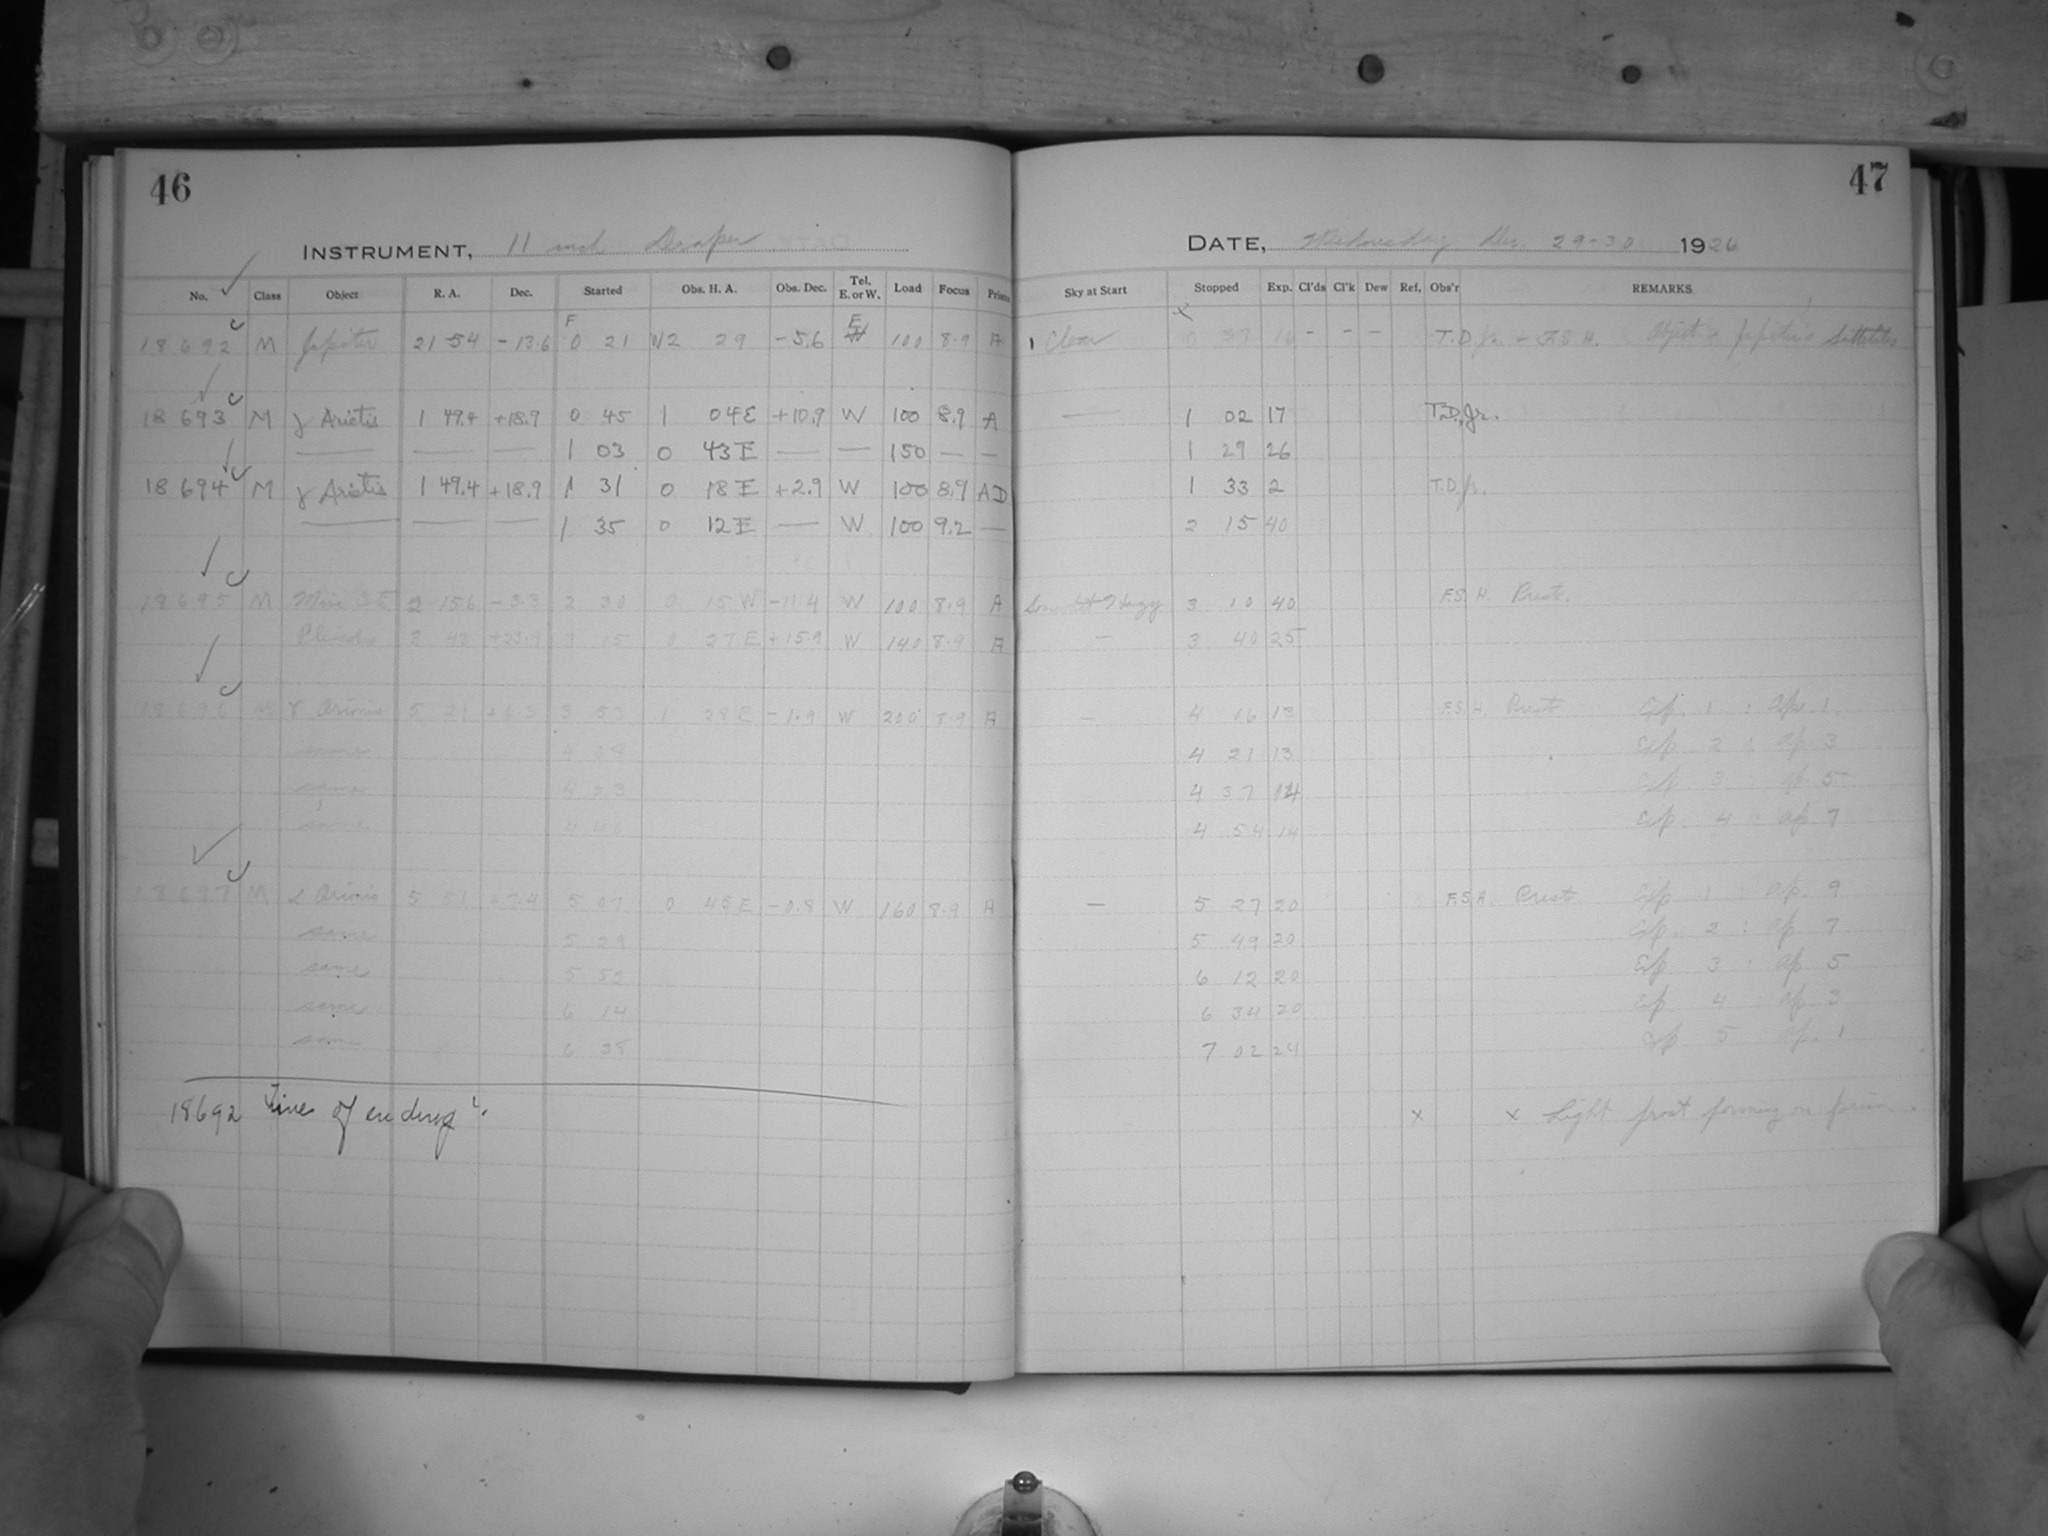 46
INSTRUMENT, 11 inch Draper
No. Class Object R. A. Dec. Started Obs. H. A. Obs. Dec. Tel. E. or W. Load Focus Prism
F E
18692 M Jupiter 21 54 -13.6 0 21 W2 29 -5.6 W 100 8.9 A
18693 M γ Arietis 1 49.4 +18.9 0 45 1 04E +10.9 W 100 8.9 A
— — — 1 03 0 43E — — 150 — —
18694 M γ Arietis 1 49.4 +18.9 1 31 0 18E +2.9 W 100 8.9 AD
— — — 1 35 0 12E — W 100 9.2 —
18695 M 2 15.6 -3.3 2 30 0 15W -11.4 W 100 8.9 A
3 15 0 27E +15.9 W 140 8.9 A
18696 M γ Orionis 5 21 +6.3 3 53 1 28E -1.9 W 200 8.9 A
same 4 08
same 4 23
same 4 40
18697 M α Orionis 5 51 +7.4 5 07 0 45E -0.8 W 160 8.9 A
same 5 29
same 5 52
same 6 14
same 6 38
18692 Time of ending?
47
DATE, Wednesday Dec. 29-30 1926
Sky at Start Stopped Exp. Cl'ds Cl'k Dew Ref. Obs'r REMARKS
x
Clear 0 37 16 - - - T.D.Jr. + F.S.H. Object = Jupiter's Sattelites
— 1 02 17 T.D.Jr.
1 29 26
1 33 2 T.D.Jr.
2 15 40
Somewhat Hazy 3 10 40 F.S.H. Prest.
— 3 40 25
— 4 16 13 F.S.H. Prest Exp. 1 : Ap. 1
4 21 13 Exp 2 : Ap 3
4 37 14 Exp 3 : Ap 5
4 54 14 Exp 4 : Ap 7
— 5 27 20 F.S.H. Prest. Exp 1 : Ap. 9
5 49 20 Exp. 2 : Ap 7
6 12 20 Exp 3 : Ap 5
6 34 20 Exp 4 : Ap 3
7 02 24 Exp 5 : Ap. 1
x x Light frost forming on prism.